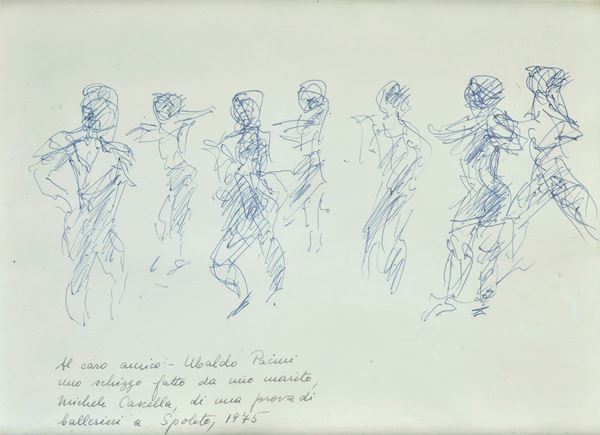 Al caro amico - Ubaldo Pacini
uno schizzo fatto da mio marito,
Michele Cascella, di una prova di
ballerini a Spoleto, 1975